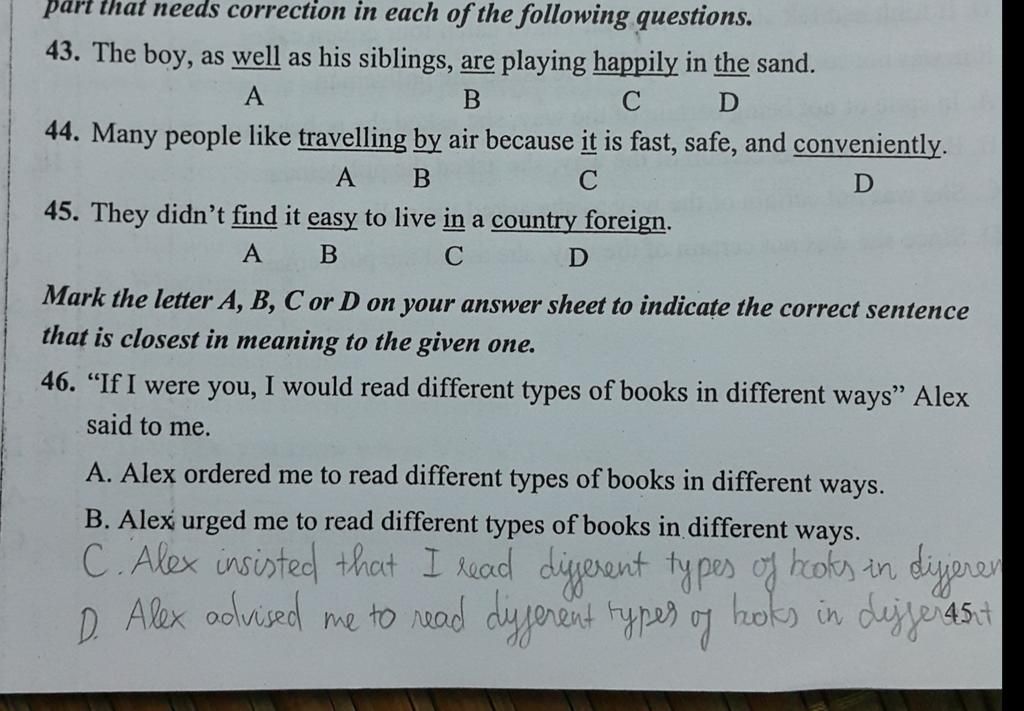 part that needs correction in each of the following questions.
43. The boy, as well as his siblings, are playing happily in the sand.
A B C D
44. Many people like travelling by air because it is fast, safe, and conveniently.
A B C D
45. They didn't find it easy to live in a country foreign.
A B C D
Mark the letter A, B, C or D on your answer sheet to indicate the correct sentence
that is closest in meaning to the given one.
46. “If I were you, I would read different types of books in different ways” Alex
said to me.
A. Alex ordered me to read different types of books in different ways.
B. Alex urged me to read different types of books in different ways.
C. Alex insisted that I read different types of books in differen
D. Alex advised me to read different types of books in different
45